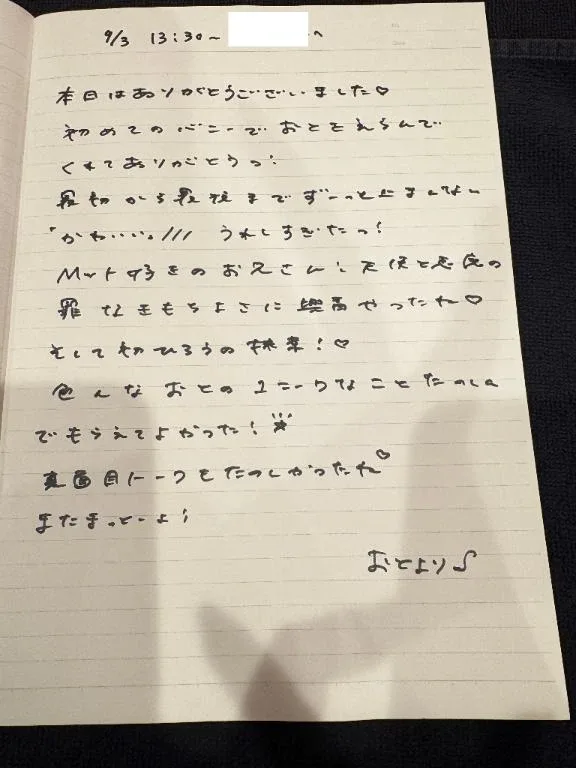 9/3 13:30~ へ
本日はありがとうございました♡
初めてのバニーでおとをえらんで
くれてありがとうっ!
最初から最後までずーっと止まんない
"かわいい。/// うれしすぎたっ!
Mっ气好きのお兄さんに天使と悪魔の
罪なきもちよさに興奮やったね♡
そして初ひろうの!♡
色んなおとのユニークなことたのしん
でもらえてよかった!
真面目トークもたのしかったね♡
またまっとーよ!
おとより♪